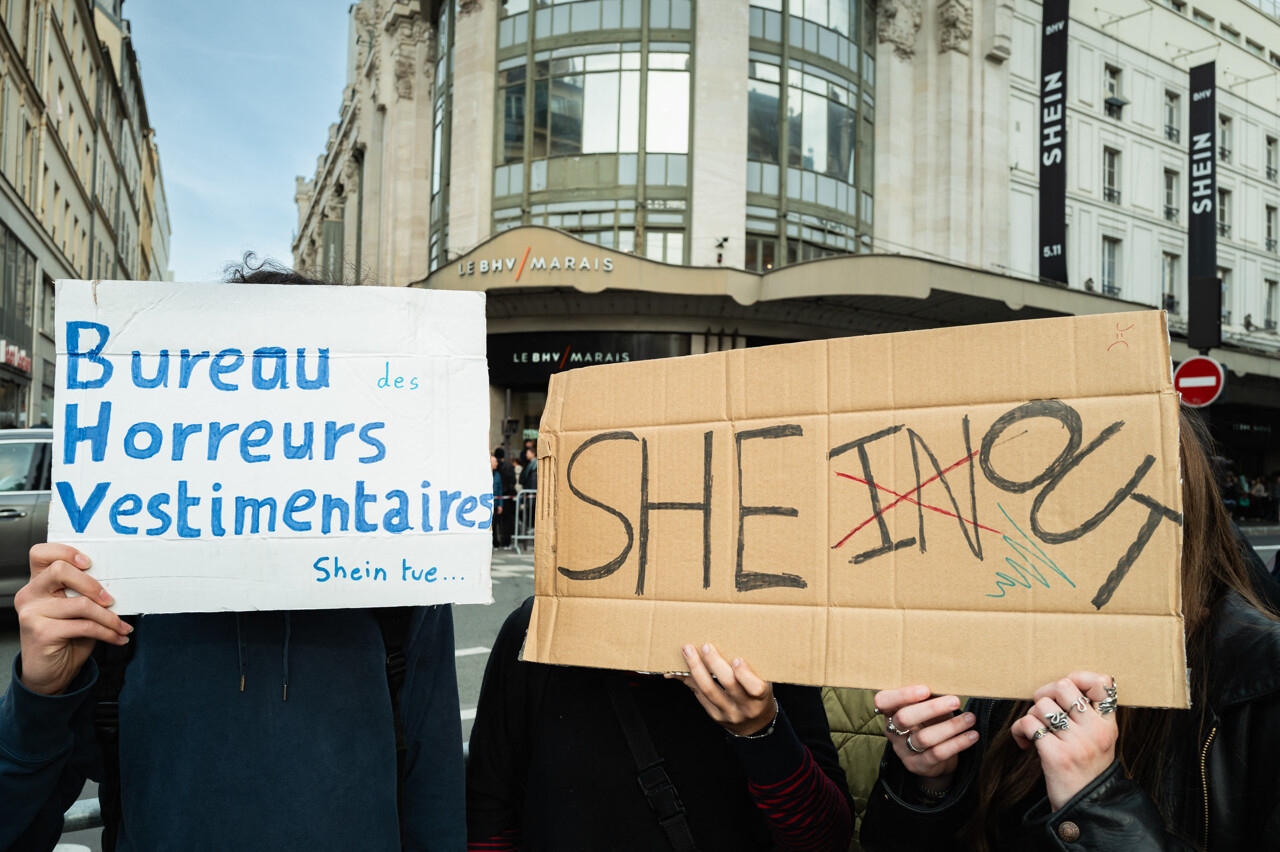 BHV
SHEIN
5.11
BHV
SHEIN
LE BHV/MARAIS
LE BHV/MARAIS
Bureau des
Horreurs
Vestimentaires
Shein tue...
SHE IN OUT